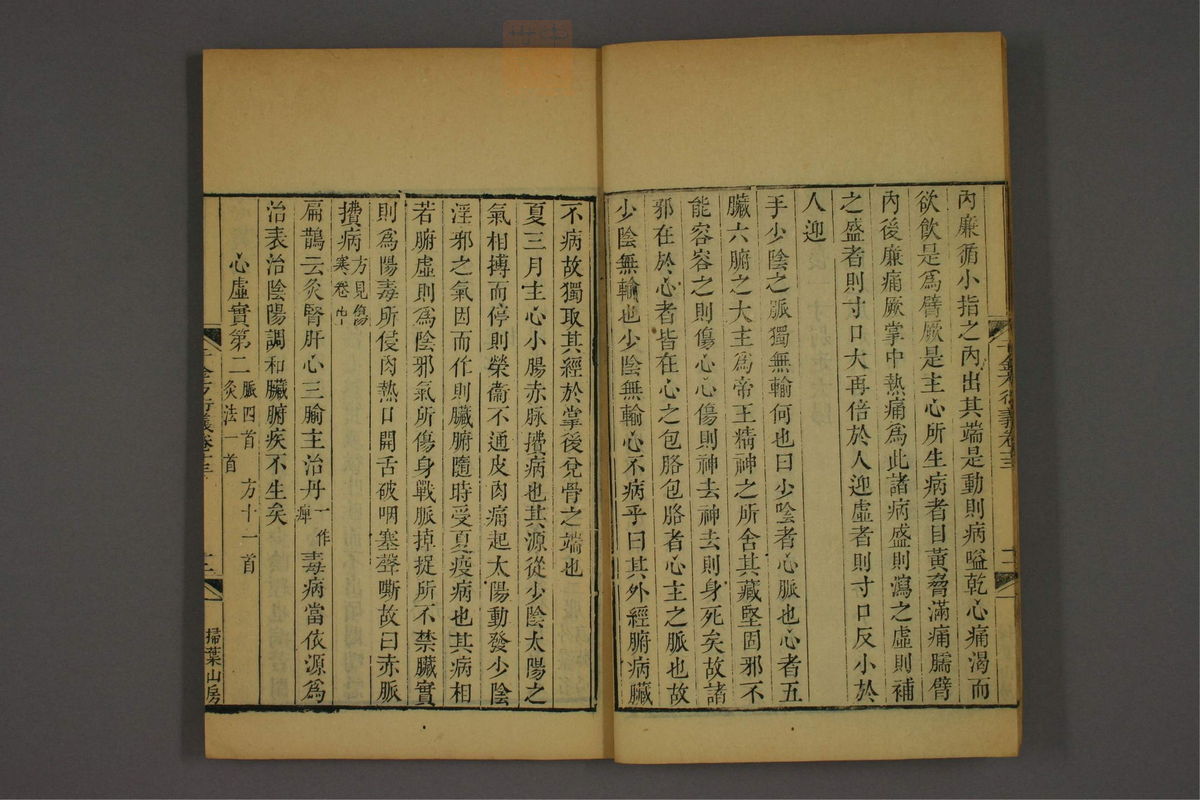 內廉循小指之內出其端是動則病嗌乾心痛渴而
欲飲是爲臂厥是主心所生病者目黃脅滿痛臑臂
內後廉痛厥掌中熱痛爲此諸病盛則瀉之虛則補
之盛者則寸口大再倍於人迎虛者則寸口反小於
人迎
手少陰之脈獨無輸何也曰少陰者心脈也心者五
臟六腑之大主爲帝王精神之所舍其藏堅固邪不
能容容之則傷心心傷則神去神去則身死矣故諸
邪在於心者皆在心之包胳包胳者心主之脈也故
少陰無輸也少陰無輸心不病乎曰其外經腑病臟
不病故獨取其經於掌後兌骨之端也
夏三月主心小腸赤脉㩌病也其源從少陰太陽之
氣相搏而停則榮衞不通皮肉痛起太陽動發少陰
淫邪之氣因而作則臟腑隨時受夏疫病也其病相
若腑虛則爲陰邪氣所傷身戰脈掉捉所不禁臟實
則爲陽毒所侵肉熱口開舌破咽塞聲嘶故曰赤脈
㩌病方見傷寒卷中
扁鵲云灸腎肝心三腧主治丹一作癉毒病當依源爲
治表治陰陽調和臟腑疾不生矣
心虛實第二脈四首 方十一首 灸法一首
掃葉山房